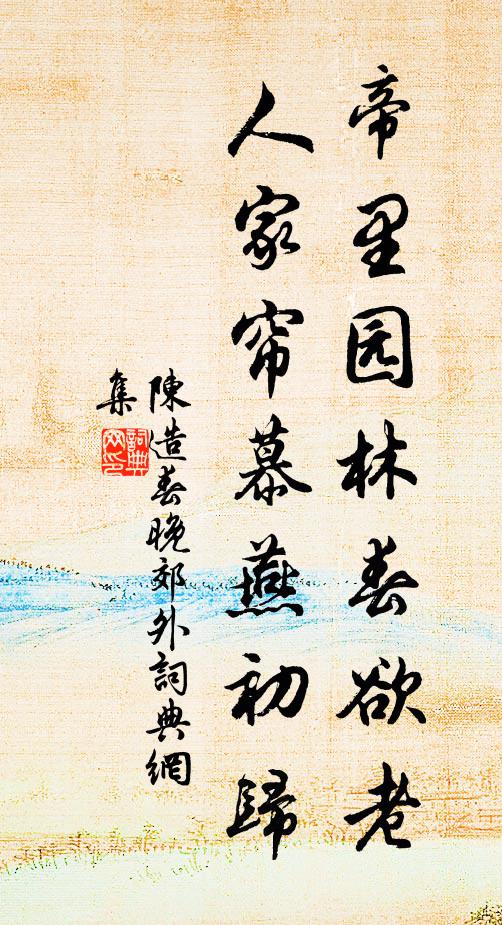 帝里园林春欲老
人家帘慕燕初歸
陳造春晚郊外詞典網
集
詞典网印